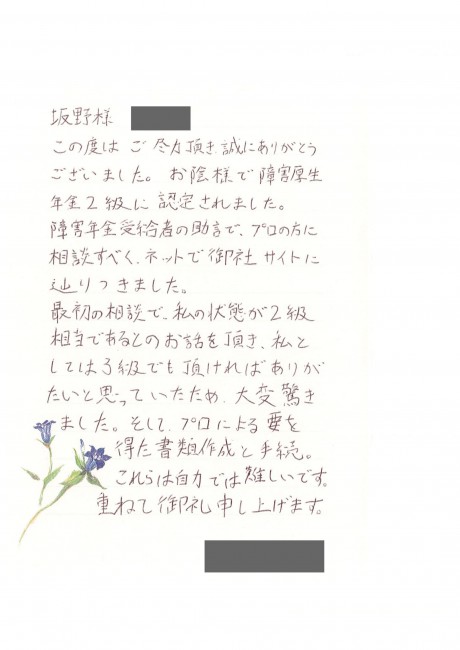 坂野様
この度は ご尽力頂き、誠にありがとう
ございました。お陰様で障害厚生
年金2級に認定されました。
障害年金受給者の助言で、プロの方に
相談すべく、ネットで御社サイトに
辿りつきました。
最初の相談で、私の状態が2級
相当であるとのお話を頂き、私と
しては3級でも頂ければありが
たいと思っていたため、大変驚き
ました。そして、プロによる要を
得た書類作成と手続。
これらは自力では難しいです。
重ねて御礼申し上げます。